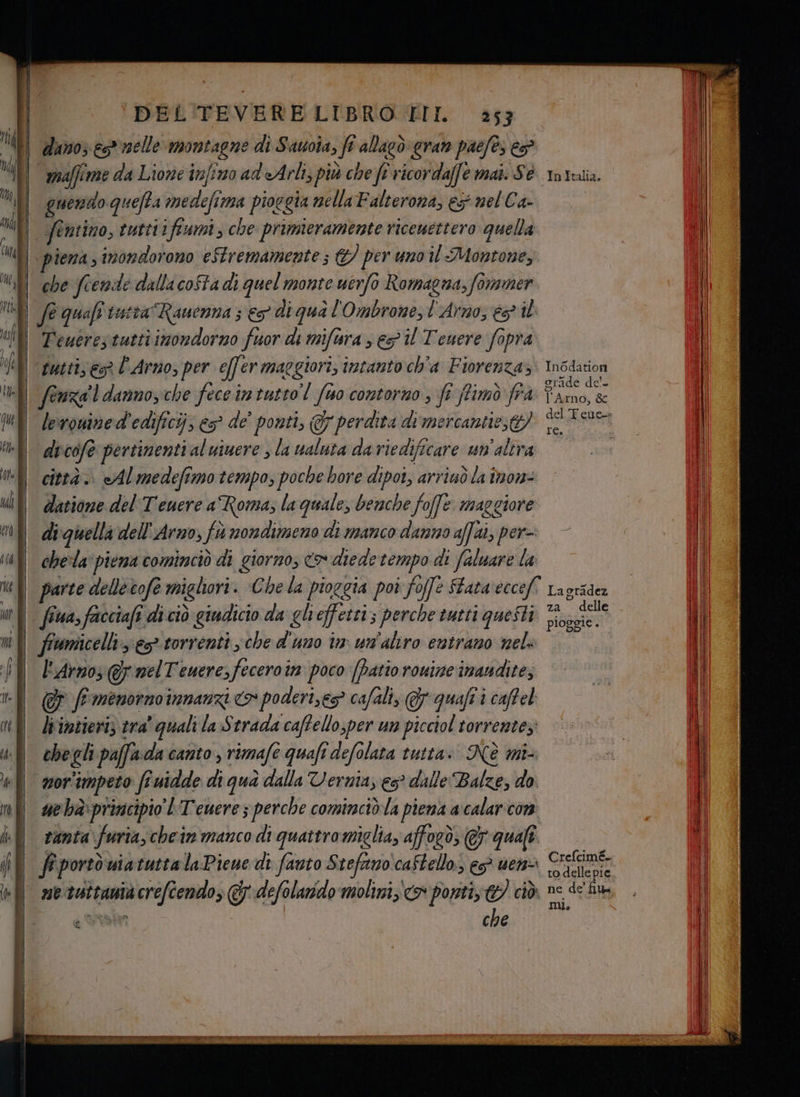 DEL TEVERE LIBRO III. 253
dano, & nelle montagne di Sauoia, ſi allagò gran paeſe, &
maſſime da Lione inſino ad Arli, più che ſi ricordaſſe mai. Se
guendo queſta medeſima pioggia nella Falterona, & nel Ca-
ſentino, tutti i fiumi, che primieramente riceuettero quella
piena, inondorono eſtremamente; & per uno il Montone,
che ſcende dalla coſta di quel monte uerſo Romagna, ſommer
ſe quaſi tutta Rauenna; & di quà l'Ombrone, l'Arno, & il
Teuere, tutti inondorno fuor di miſura, & il Teuere ſopra
tutti, & l'Arno, per eſſer maggiori, intanto ch'a Fiorenza,
ſenza'l danno, che fece in tutto'l ſuo contorno, ſi ſtimò fra
le rouine d'edificij, & de' ponti, & perdita di mercantie, &
di coſe pertinenti al uiuere, la ualuta da riedificare un'altra
città. Al medeſimo tempo, poche hore dipoi, arriuò la inon-
datione del Teuere a Roma, la quale, benche foſſe maggiore
di quella dell'Arno, fù nondimeno di manco danno aſſai, per-
che la piena cominciò di giorno, & diede tempo di ſaluare la
parte delle coſe migliori. Che la pioggia poi foſſe ſtata ecceſ
ſiua, facciaſi di ciò giudicio da gli effetti; perche tutti queſti
fiumicelli, & torrenti, che d'uno in un'altro entrano nel-
l'Arno, & nel Teuere, fecero in poco ſpatio rouine inaudite,
& ſi menorno innanzi & poderi, & caſali, & quaſi i caſtel
li intieri; tra' quali la Strada caſtello, per un picciol torrente,
che gli paſſa da canto, rimaſe quaſi deſolata tutta. Nè mi-
nor'impeto ſi uidde di quà dalla Vernia, & dalle Balze, do
ue hà principio'l Teuere; perche cominciò la piena a calar con
tanta furia, che in manco di quattro miglia, affogò, & quaſi
ſi portò uia tutta la Pieue di ſanto Stefano caſtello, & uen-
ne tuttauia creſcendo, & deſolando molini, & ponti, & ciò
che
In Italia.
Inõdation
grãde de'l-
l'Arno, &
del Teue-
re.
La grãdez
za delle
pioggie.
Creſcimẽ-
to delle pie
ne de' fiu-
mi.